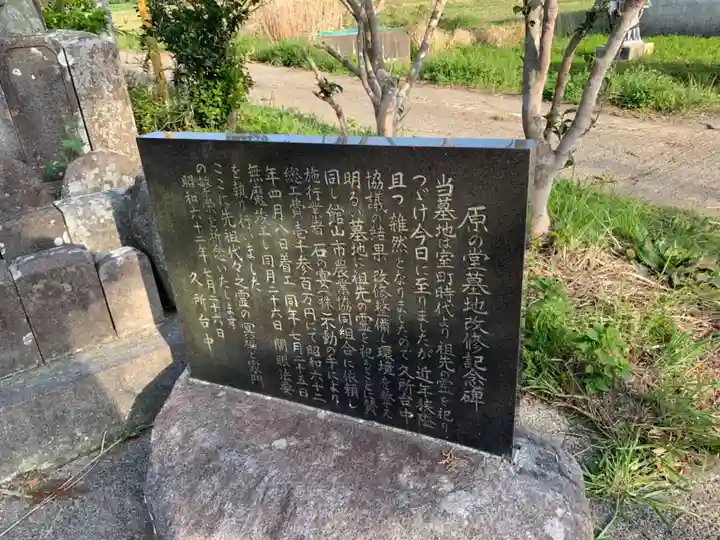 原の堂墓地改修記念碑
当墓地は室町時代より祖先の霊を祀り
つづけ今日に至りましたが近年狭隘
且つ雑然となりましたので久所台中
協議の結果改修整備し環境を整え
明るい墓地に祖先の霊を祀ることに
同し館山市農業協同組合に依頼し
施行業者 石の宴(株)不動の手により
総工費壱千参百万円にて昭和六十二
年四月八日着工 同年七月二十五日
無魔竣工し同月二十六日 開眼法要
を執り行いました
ここに先祖代々之霊の冥福と家門
の繁栄を祈念いたします
昭和六十二年七月二十六日
久所台中